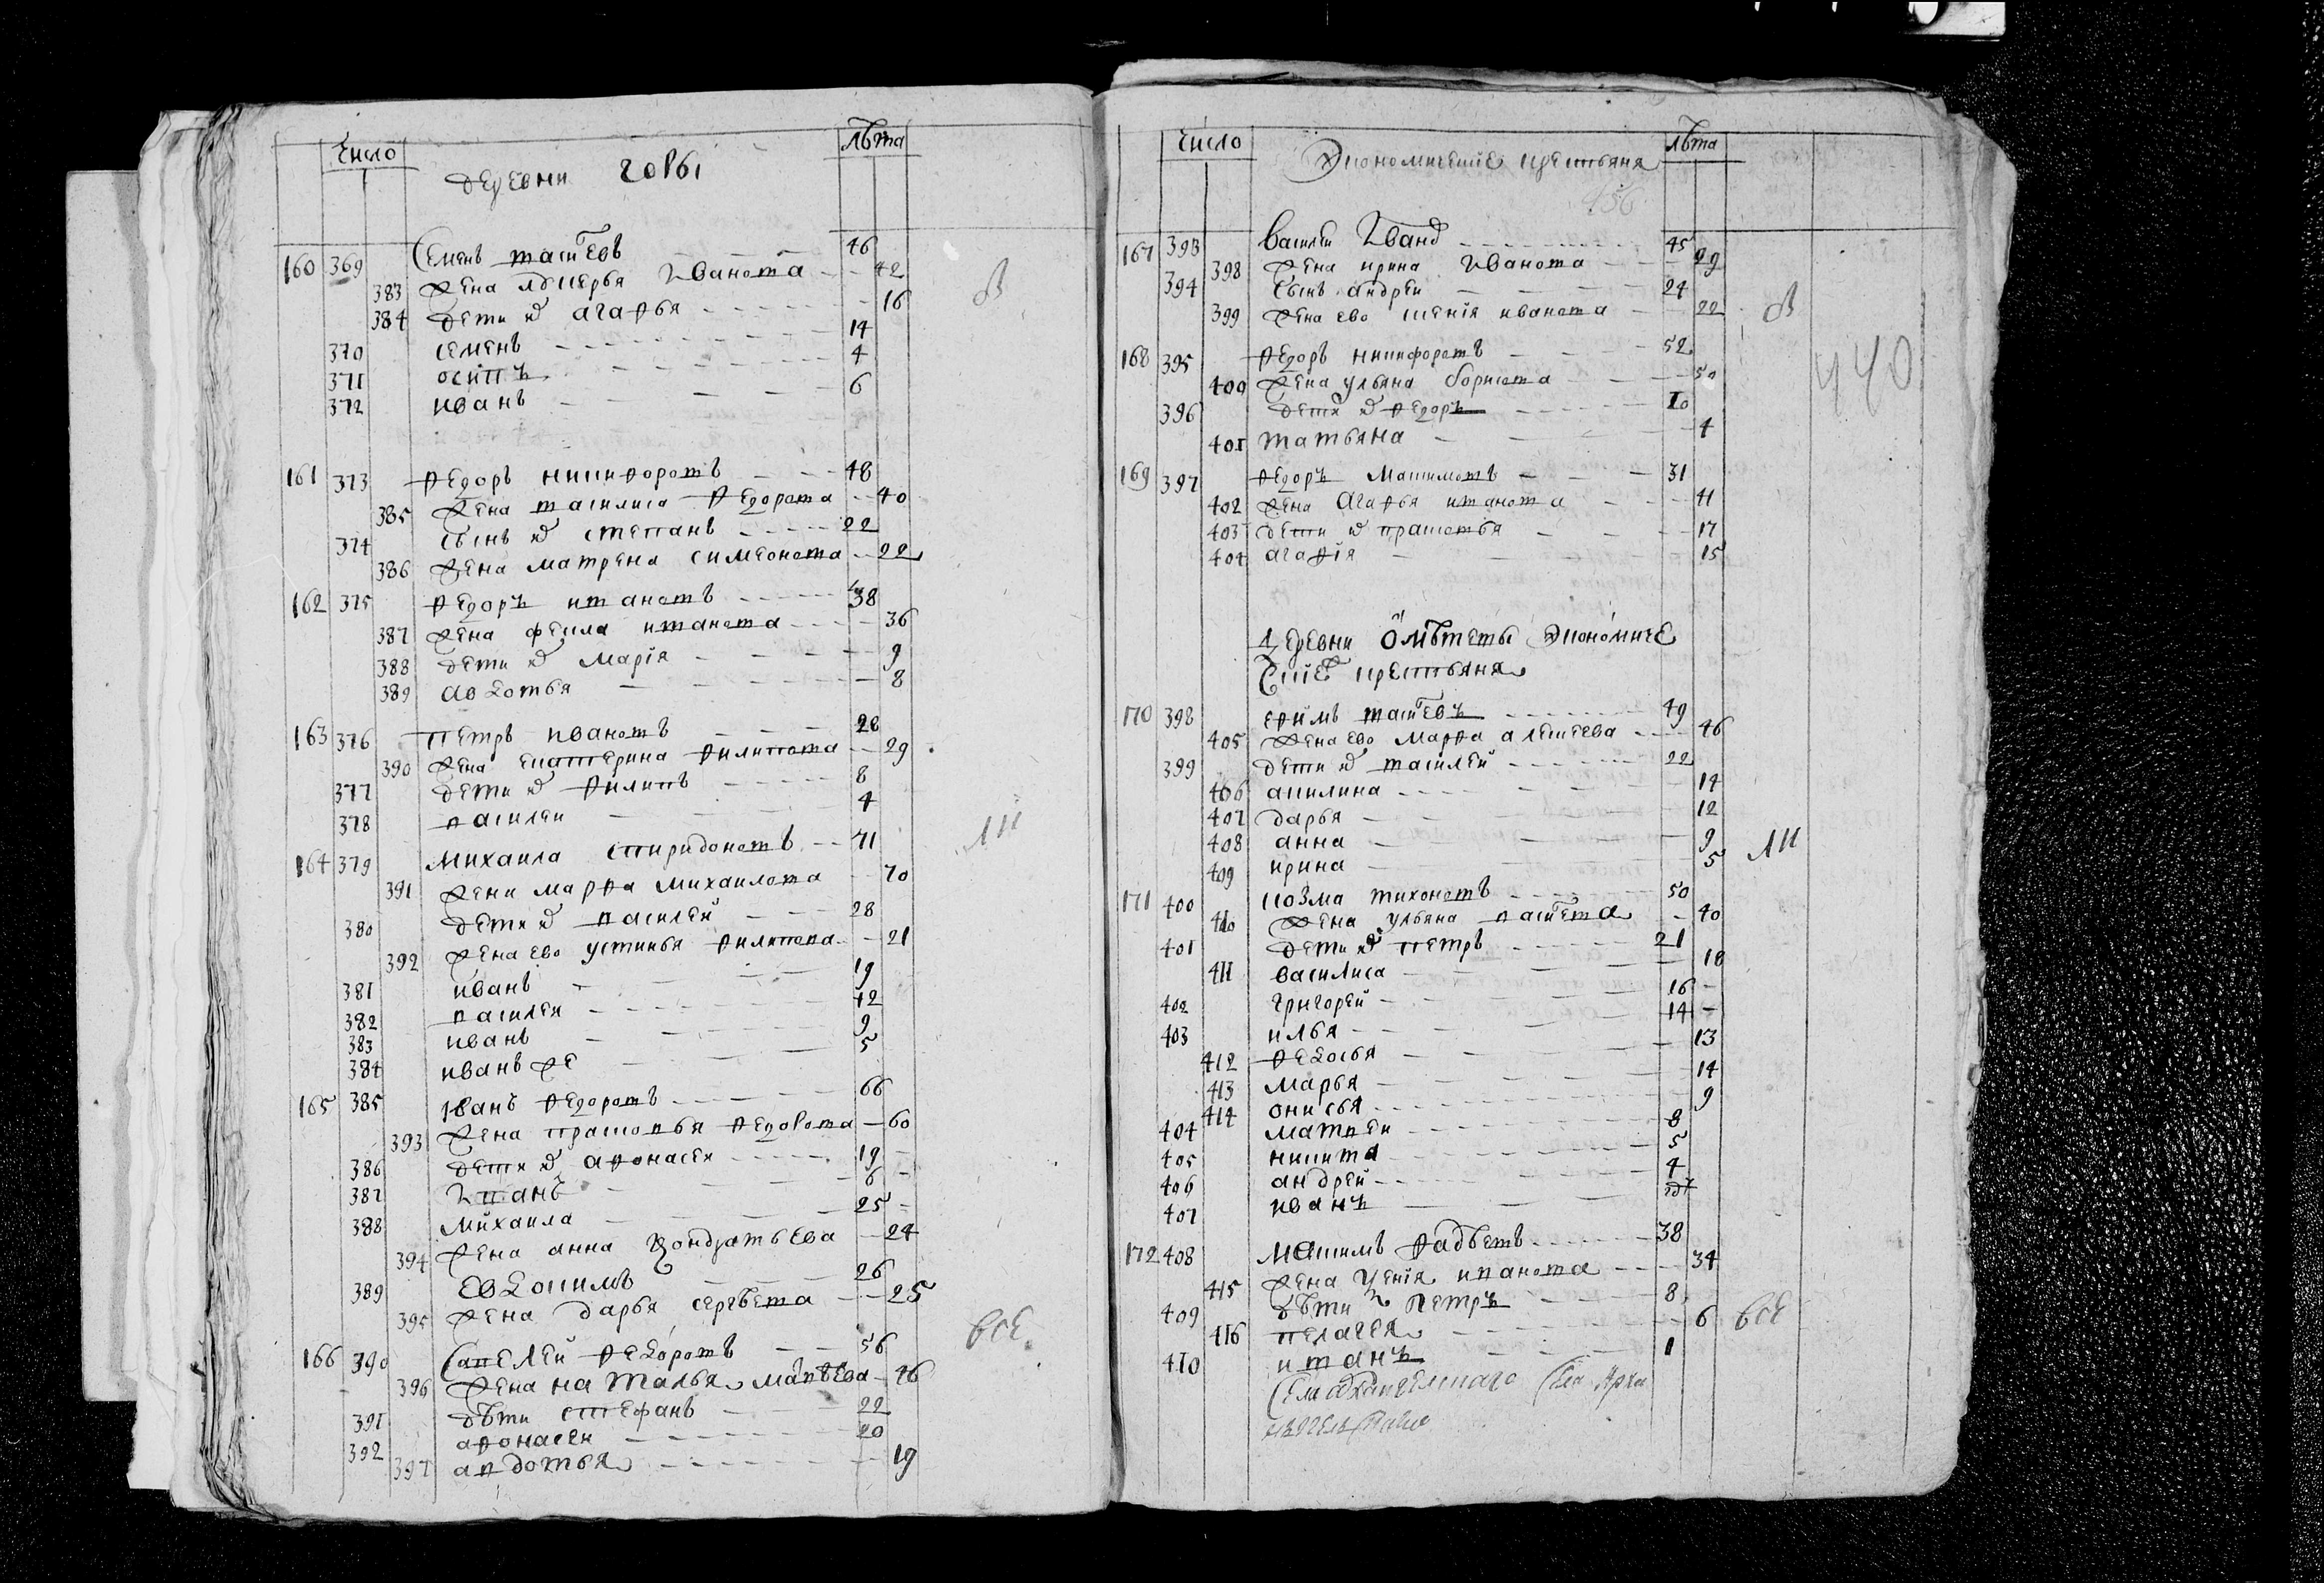 Число
лѣта
деревни горы
160 369 Семенъ васиевъ 46
383 жена лукерья Иванова 42
384 дети их агафья 16
370 семенъ 14
371 осипъ 4
372 иванъ 6
161 373 Федоръ никифоровъ 48
385 жена василиса Федорова 40
374 сынъ их степанъ 22
386 жена матрена симеонова 22
162 375 Федоръ ивановъ 38
387 жена фекла иванова 36
388 дети их марiя 9
389 авдотья 8
163 376 петръ ивановъ 28
390 жена екатерина Филипова 29
377 дети их Филипъ 8
378 василеи 4
164 379 михаила спиридоновъ 71
391 жена марфа михаилова 70
380 дети их василеи 28
392 жена ево устинья Филипова 21
381 иванъ 19
382 василеи 12
383 иванъ 9
384 иванъ же 5
165 385 Иванъ Федоровъ 66
393 жена прасковья Федорова 60
386 дети их афонасеи 19
387 Иванъ 6
388 михаила 25
394 жена анна кондратьева 24
389 Евдокимъ 26
395 жена дарья сергѣева 25
166 390 Савелеи Федоровъ 56
396 жена наталья матвѣева 46
391 дѣти стефанъ 22
392 афонасеи 20
397 авдотья 19
все
Число
лѣта
Экономические крестьяня
167 393 Василеи Иванов 45
398 жена ирина Иванова 49
394 сынъ андреи 24
399 жена ево ксенiя иванова 22
440
168 395 Федоръ никифоровъ 52
400 жена ульяна борисова 50
396 дети их Федоръ 10
401 татьяна 4
169 397 Федоръ Максимовъ 31
402 жена Агафья иванова 41
403 дети их прасковья 17
404 агафiя 15
экономиче
ские крестьяня
170 398 ефимъ васиевъ 49
405 жена ево марфа алексеева 46
399 дети их василеи 22
406 акилина 14
407 дарья 12
408 анна 9
409 ирина 5
171 400 козма тихоновъ 50
410 жена ульяна 40
401 дети их петръ 21
411 василиса 18
402 григореи 16
403 илья 14
412 Федосья 13
413 марья 14
414 онисья 9
404 матвеи 8
405 никита 5
406 андреи 4
407 иванъ
172 408 максимъ фадѣевъ 38
415 жена ксенiя иванова 34
409 дѣти их петръ 8
416 пелагея 6
410 иванъ 1
все